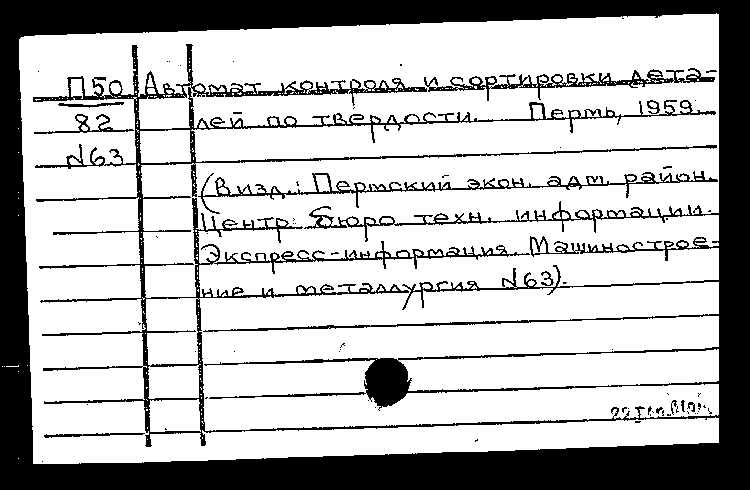 П50 Автомат контроля и сортировки дета-
82 лей по твердости. Пермь, 1959.
N63
(В изд.: Пермский экон. адм. район.
Центр. бюро техн. информации.
Экспресс-информация. Машинострое-
ние и металлургия N63).